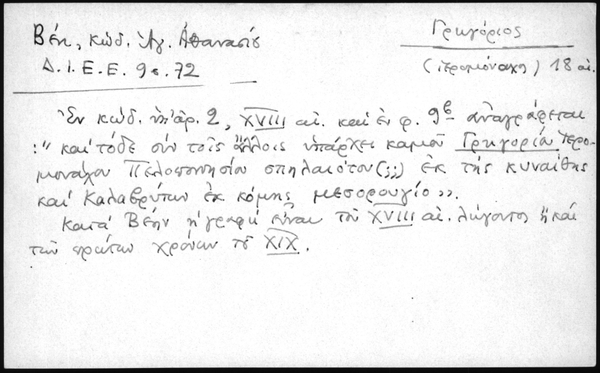 Βέη, κώδ. Ἁγ. Ἀθανασίου
Δ.Ι.Ε.Ε. 9ε. 72
Γρηγόριος
(ἱερομόναχος) 18 αἰ.
Ἐν κώδ. ὑπ' ἀρ. 2, XVIII αἰ. καὶ ἐν φ. 9β ἀναγράφεται
:" καὶ τόδε σὺν τοῖς ἄλλοις ὑπάρχει καμοῦ Γρηγορίου Ἱερο
μονάχου Πελοποννησίου σπηλαιότου(;;) ἐκ τῆς κυναίθης
καὶ Καλαβρύτων ἐκ κόμης μεσορουγίου».
Κατὰ Βέην ἡ γραφὴ εἶναι τοῦ XVIII αἰ. λήγοντος ἢ καὶ
τῶν πρώτων χρόνων τοῦ XIX.